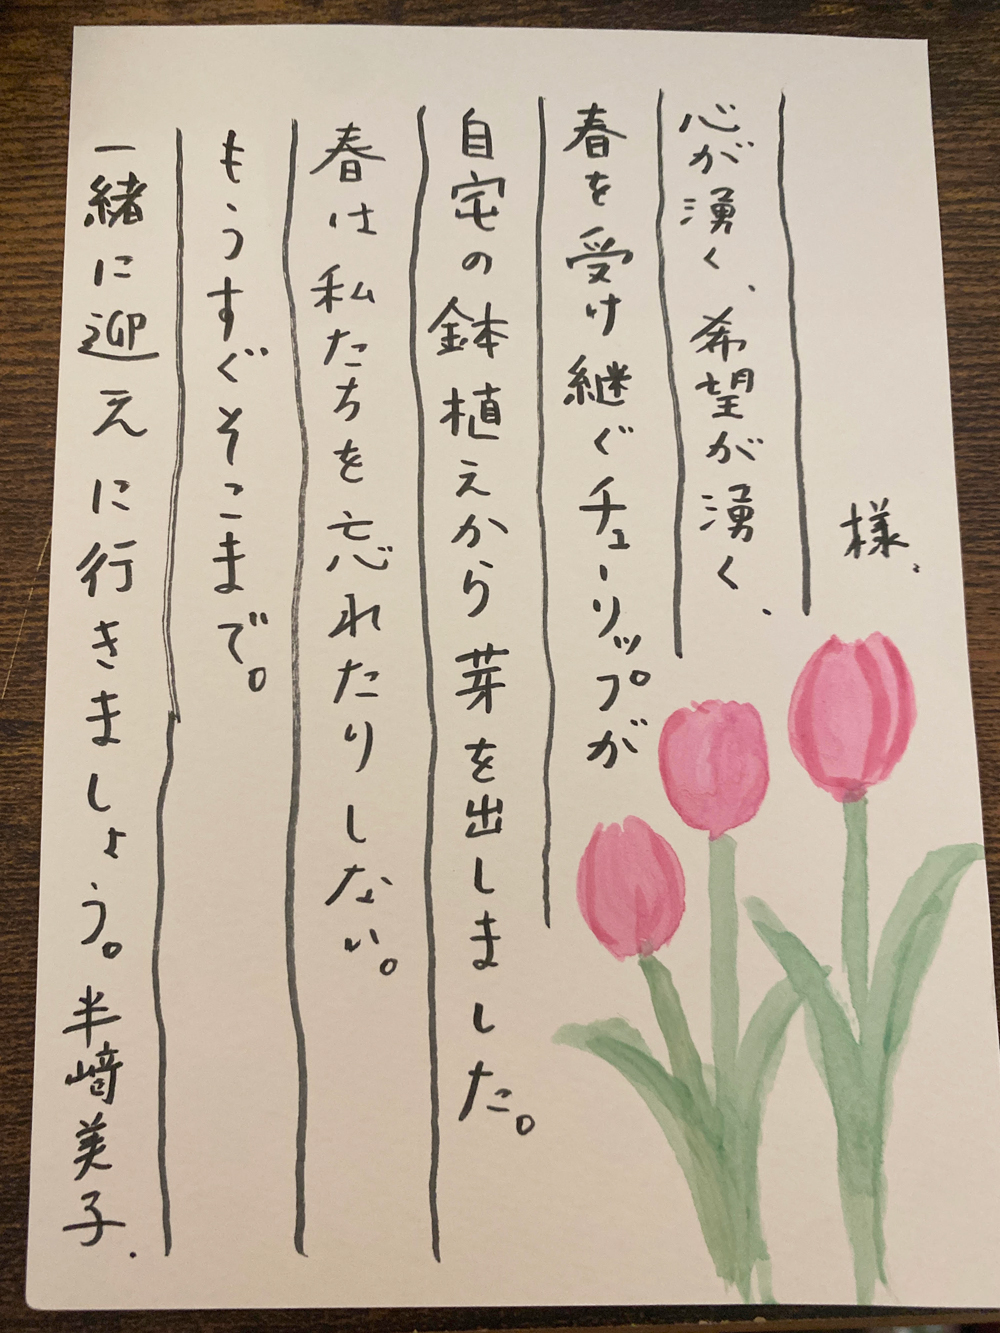 様、
心が湧く、希望が湧く、
春を受け継ぐチューリップが
自宅の鉢植えから芽を出しました。
春は私たちを忘れたりしない。
もうすぐそこまで。
一緒に迎えに行きましょう。半﨑美子.